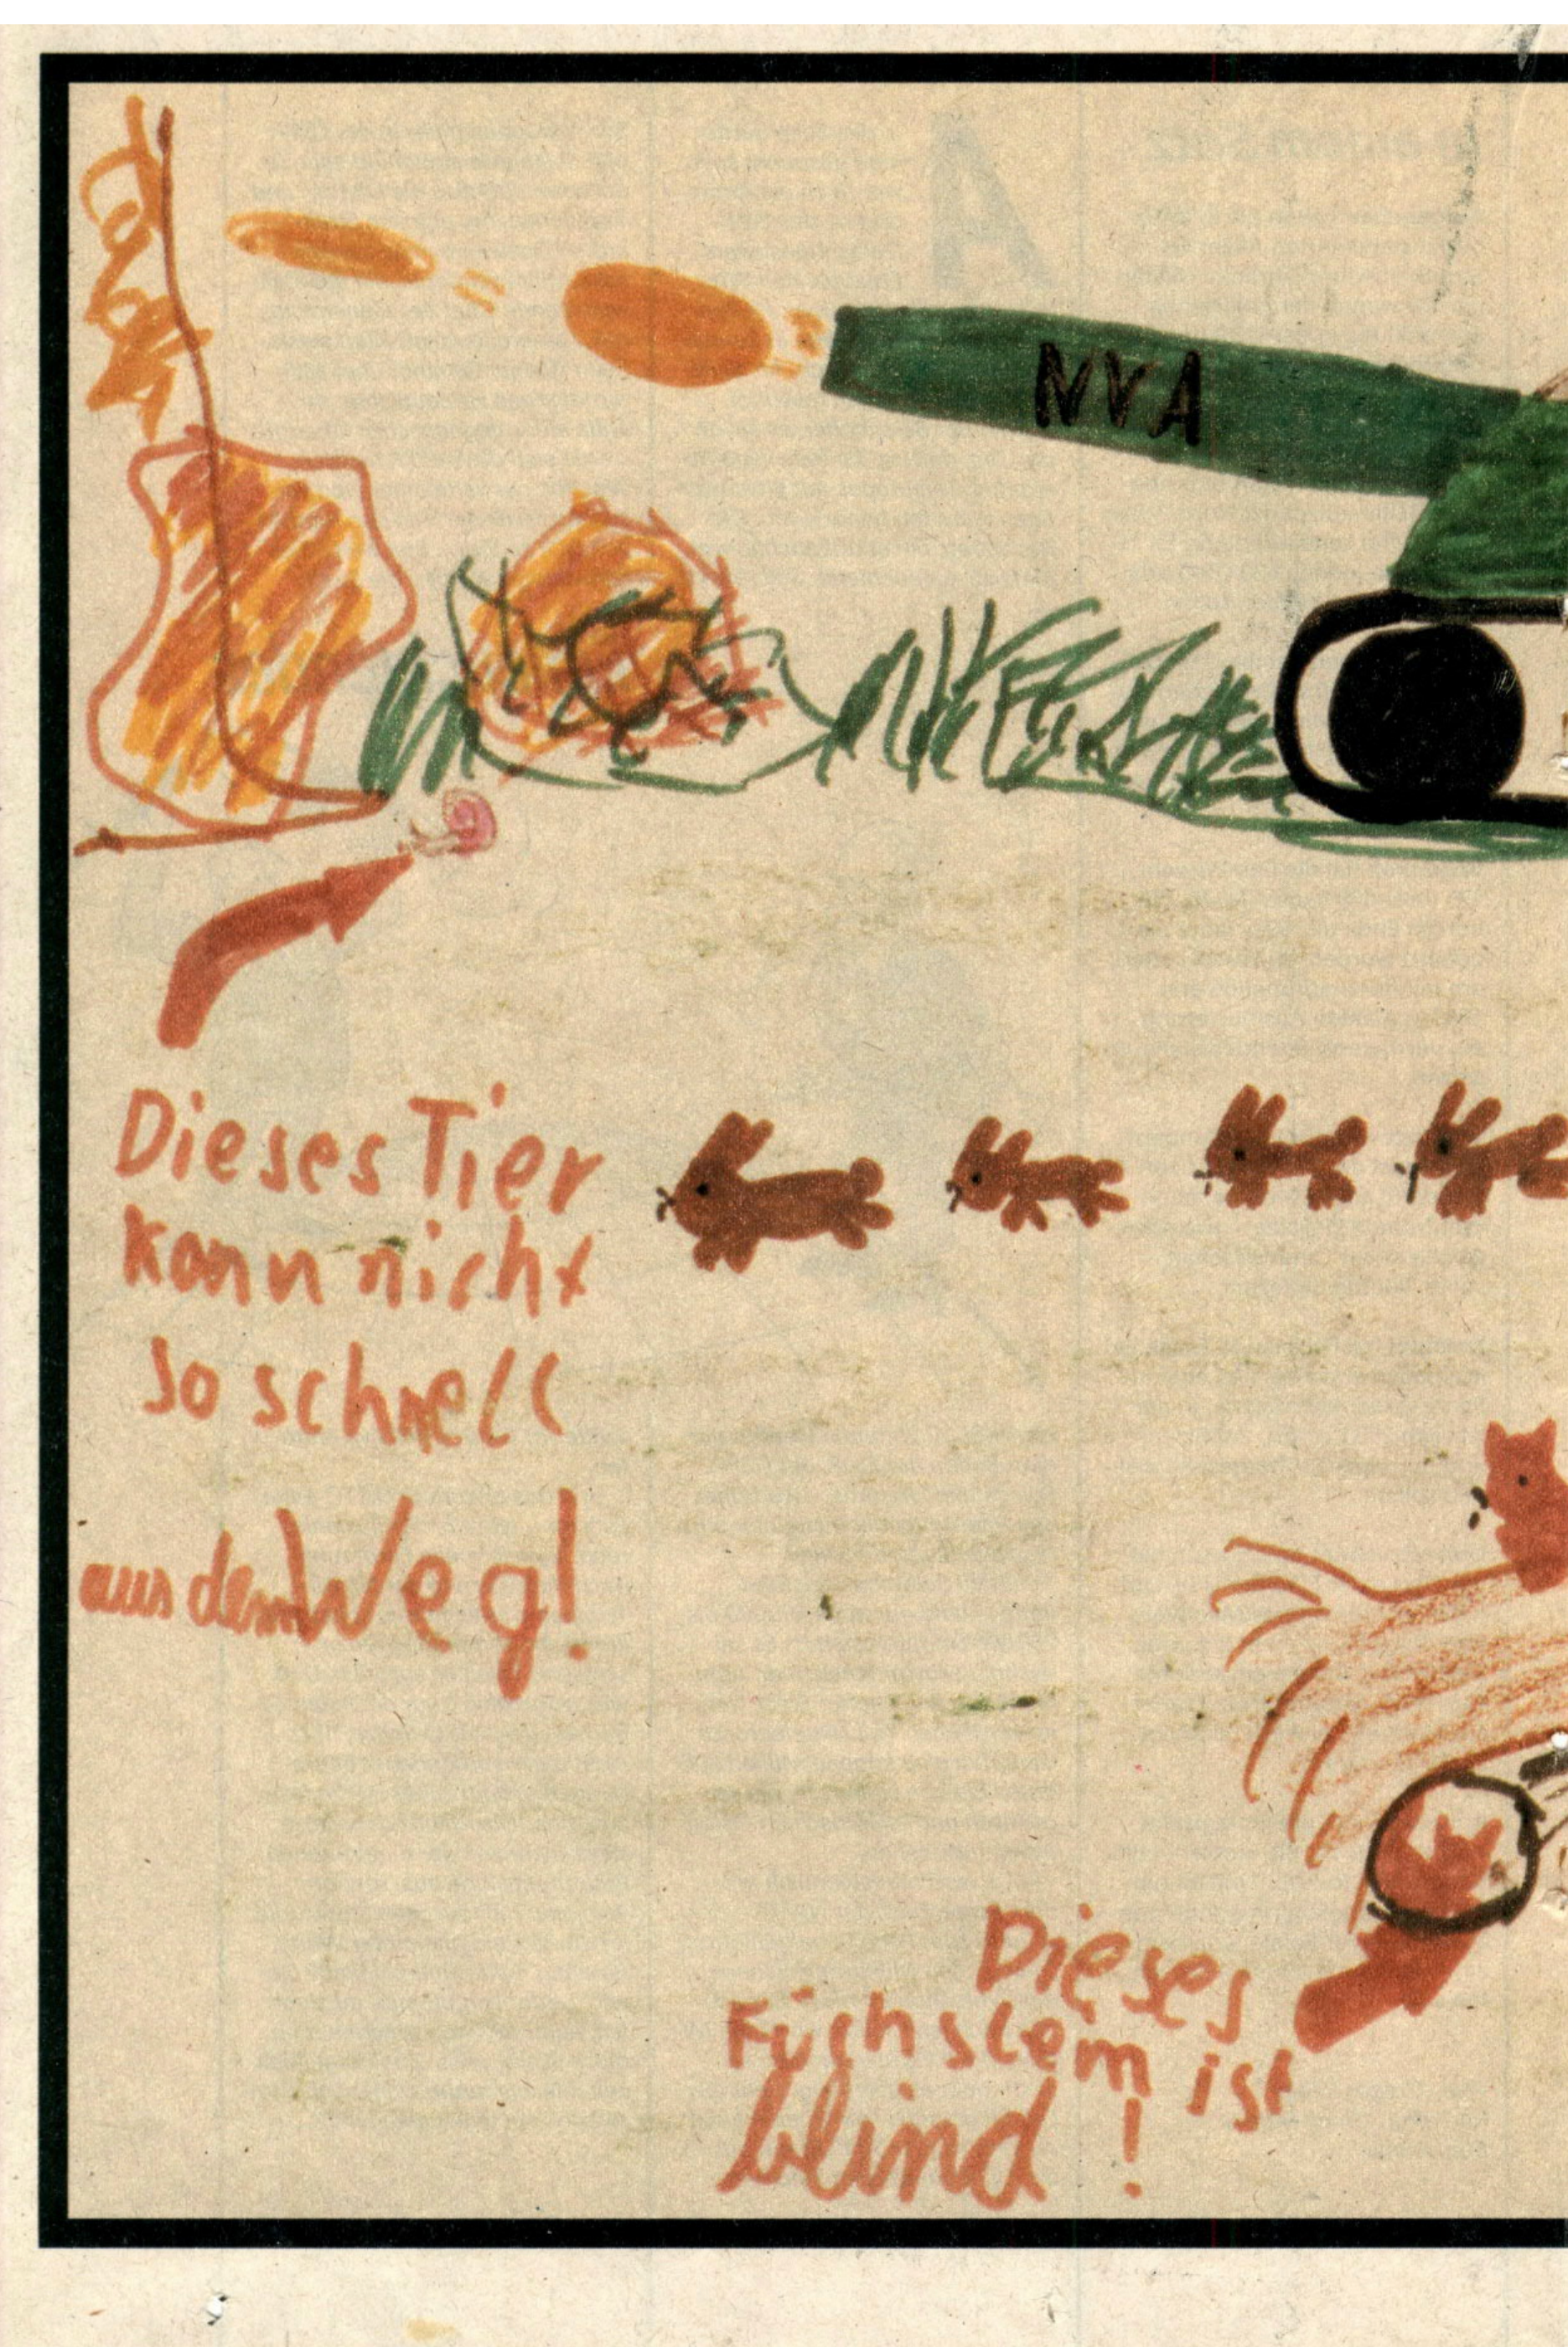 NVA
Dieses Tier
kann nicht
so schnell
aus dem Weg!
Dieses
Füchslein ist
blind!